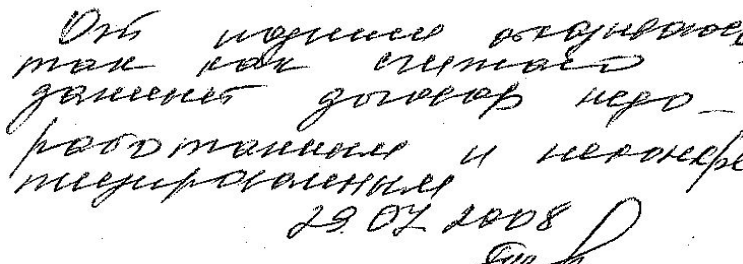 От подписи отказываюсь
так как считаю
данный договор недо-
работанным и неконкре
тизированным
29.07.2008